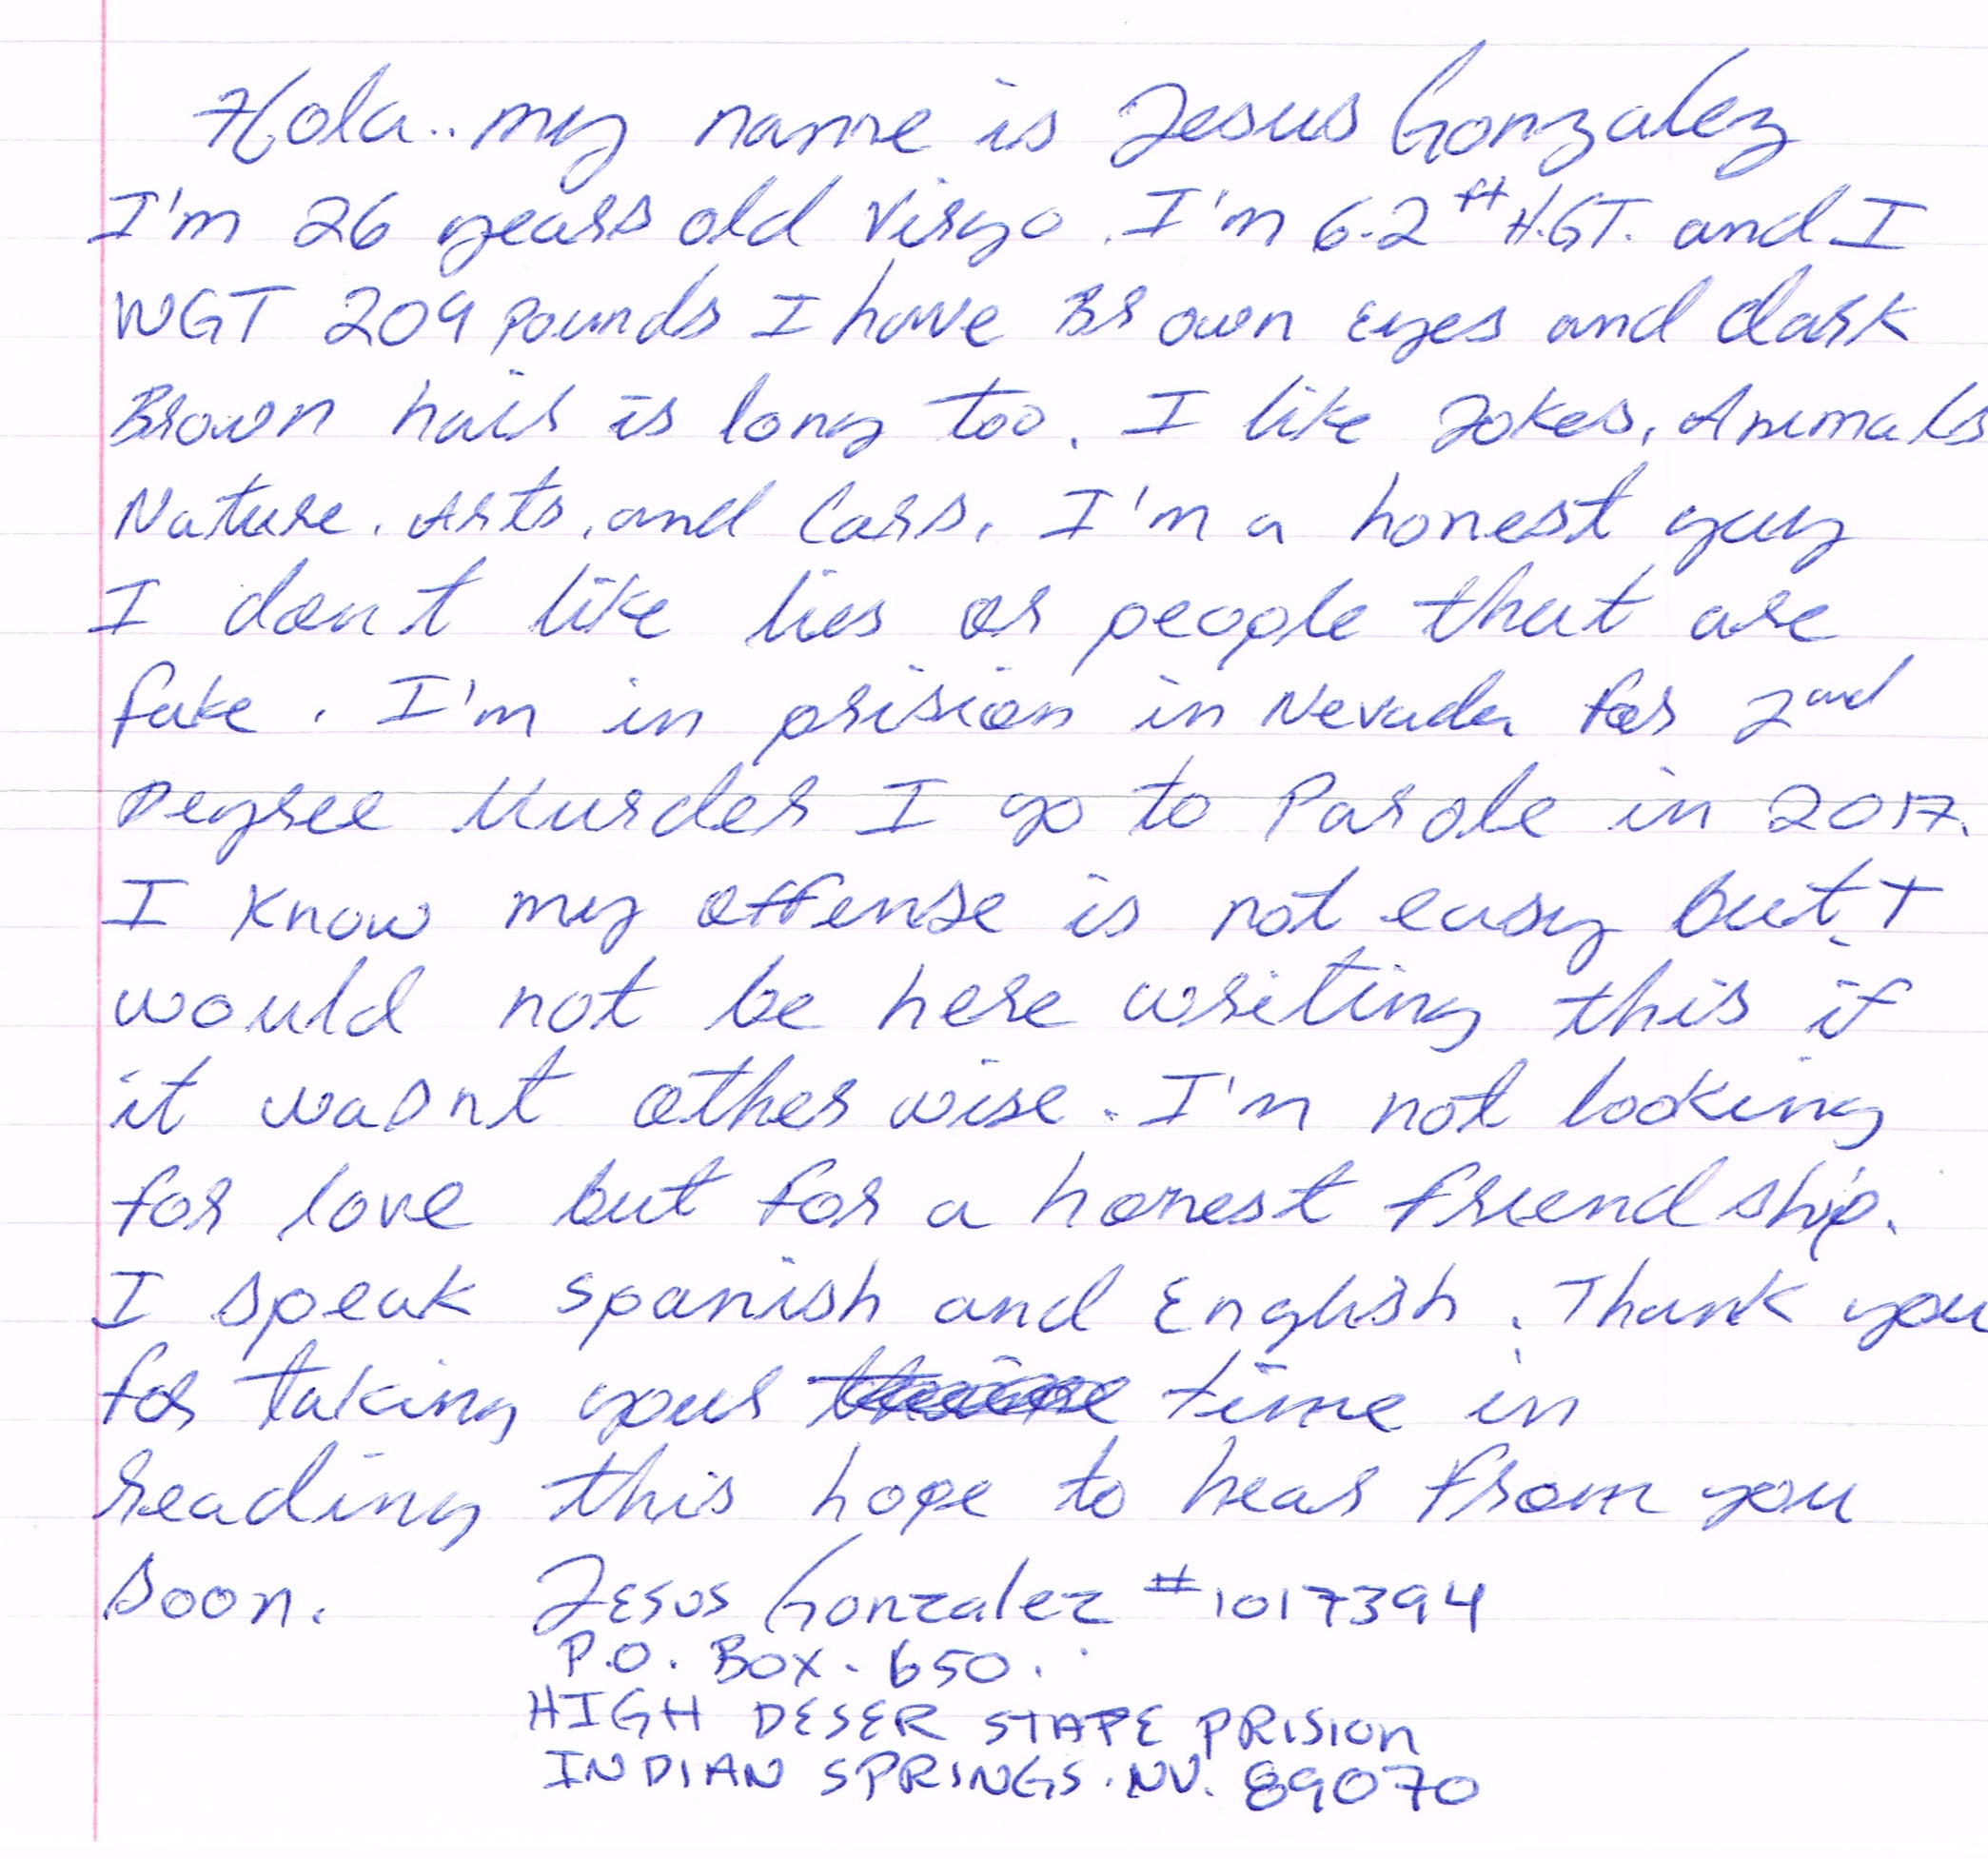 Hola.. my name is Jesus Gonzalez
I'm 26 years old Virgo. I'm 6.2 ft H.GT. and I
WGT 209 pounds I have Brown eyes and dark
Brown hair is long too. I like Jokes, Animals
Nature. Arts, and Cars. I'm a honest guy
I dont like lies or people that are
fake. I'm in prision in Nevada for 2nd
Degree Murder I go to Parole in 2017.
I know my offense is not easy but I
would not be here writing this if
it wasnt other wise. I'm not looking
for love but for a honest friend ship.
I speak spanish and English. Thank you
for taking your time in
reading this hope to hear from you
soon. Jesus Gonzalez #1017394
P.O. BOX. 650.
HIGH DESER STATE PRISION
INDIAN SPRINGS. NV. 89070